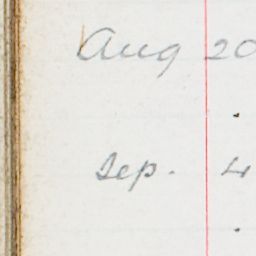 Aug 20
Sep. 4